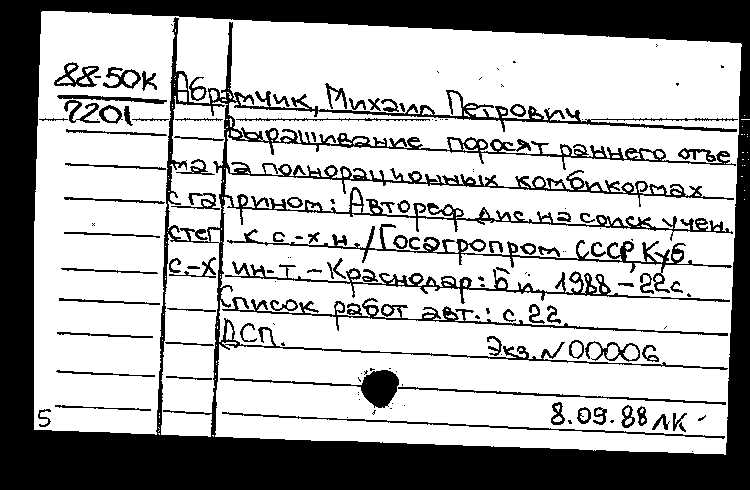 88-50К
7201
Абрамчик, Михаил Петрович.
Выращивание поросят раннего отъе
ма на полнорационных комбикормах
с гаприном: Автореф дис. на соиск учен.
степ к. с.-х.н./Госагропром СССР, Куб.
с.-х ин-т. - Краснодар: Б и., 1988. - 22с.
Список работ авт.: с.22.
ДСП. Экз. N 00006.
8.09.88 ЛК
5